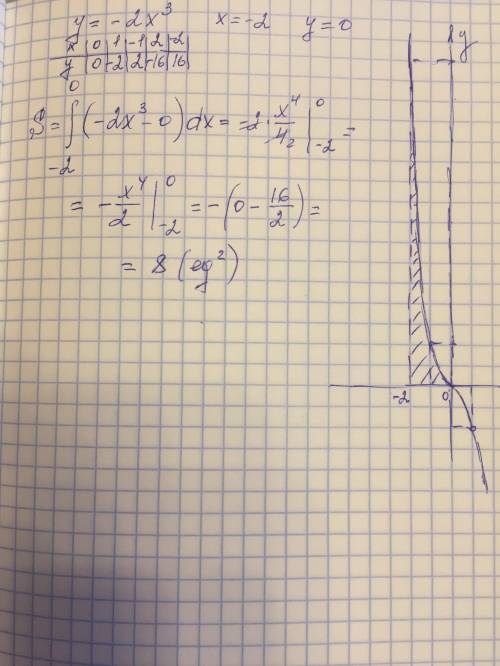 y = -2x³ x = -2 y = 0
x | 0 | 1 | -1 | 2 | -2
y | 0 | -2 | 2 | -16 | 16
S = ∫₋₂⁰ (-2x³ - 0) dx = -2 · x⁴/4₂ |₋₂⁰ =
= - x⁴/2 |₋₂⁰ = - (0 - 16/2) =
= 8 (eg²)
y
-2 0